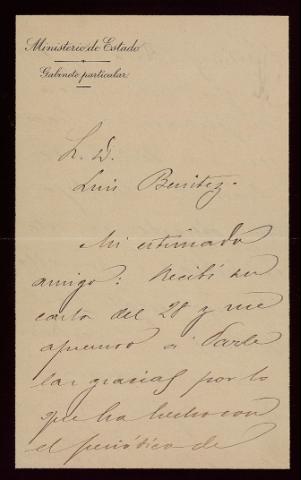 Ministerio de Estado
Gabinete particular
S. D.
Luis Benitez.
Mi estimado
amigo: Recibí su
carta del 28 y me
apresuro á darle
las gracias por lo
que ha hecho con
el periódico de